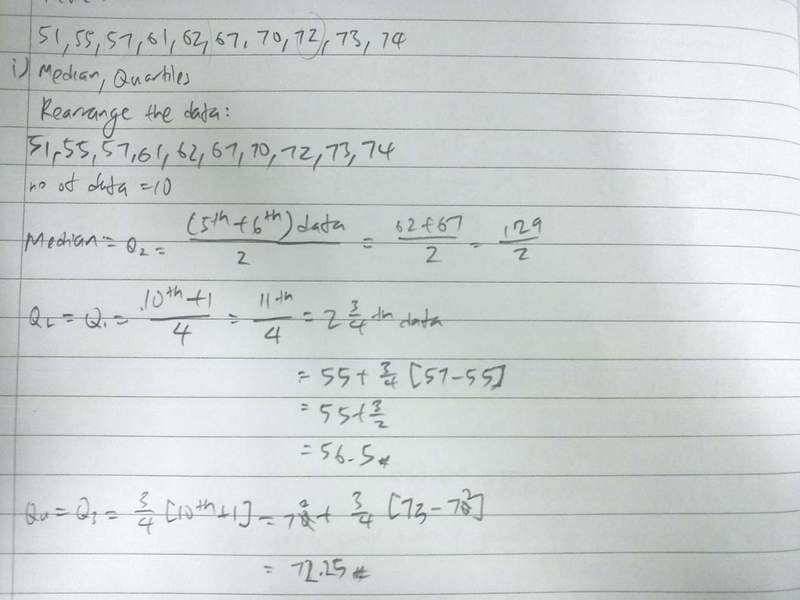 51, 55, 57, 61, 62, 67, 70, 72, 73, 74
i) Median, Quartiles
Rearrange the data:
51, 55, 57, 61, 62, 67, 70, 72, 73, 74
no of data = 10
Median = Q₂ = (5th + 6th) data / 2 = 62+67 / 2 = 129 / 2
QL = Q₁ = 10th + 1 / 4 = 11th / 4 = 2 3/4 th data
= 55 + 3/4 [57 - 55]
= 55 + 3/2
= 56.5
Qu = Q₃ = 3/4 [10th + 1] = 72 + 3/4 [73 - 72]
= 72.25